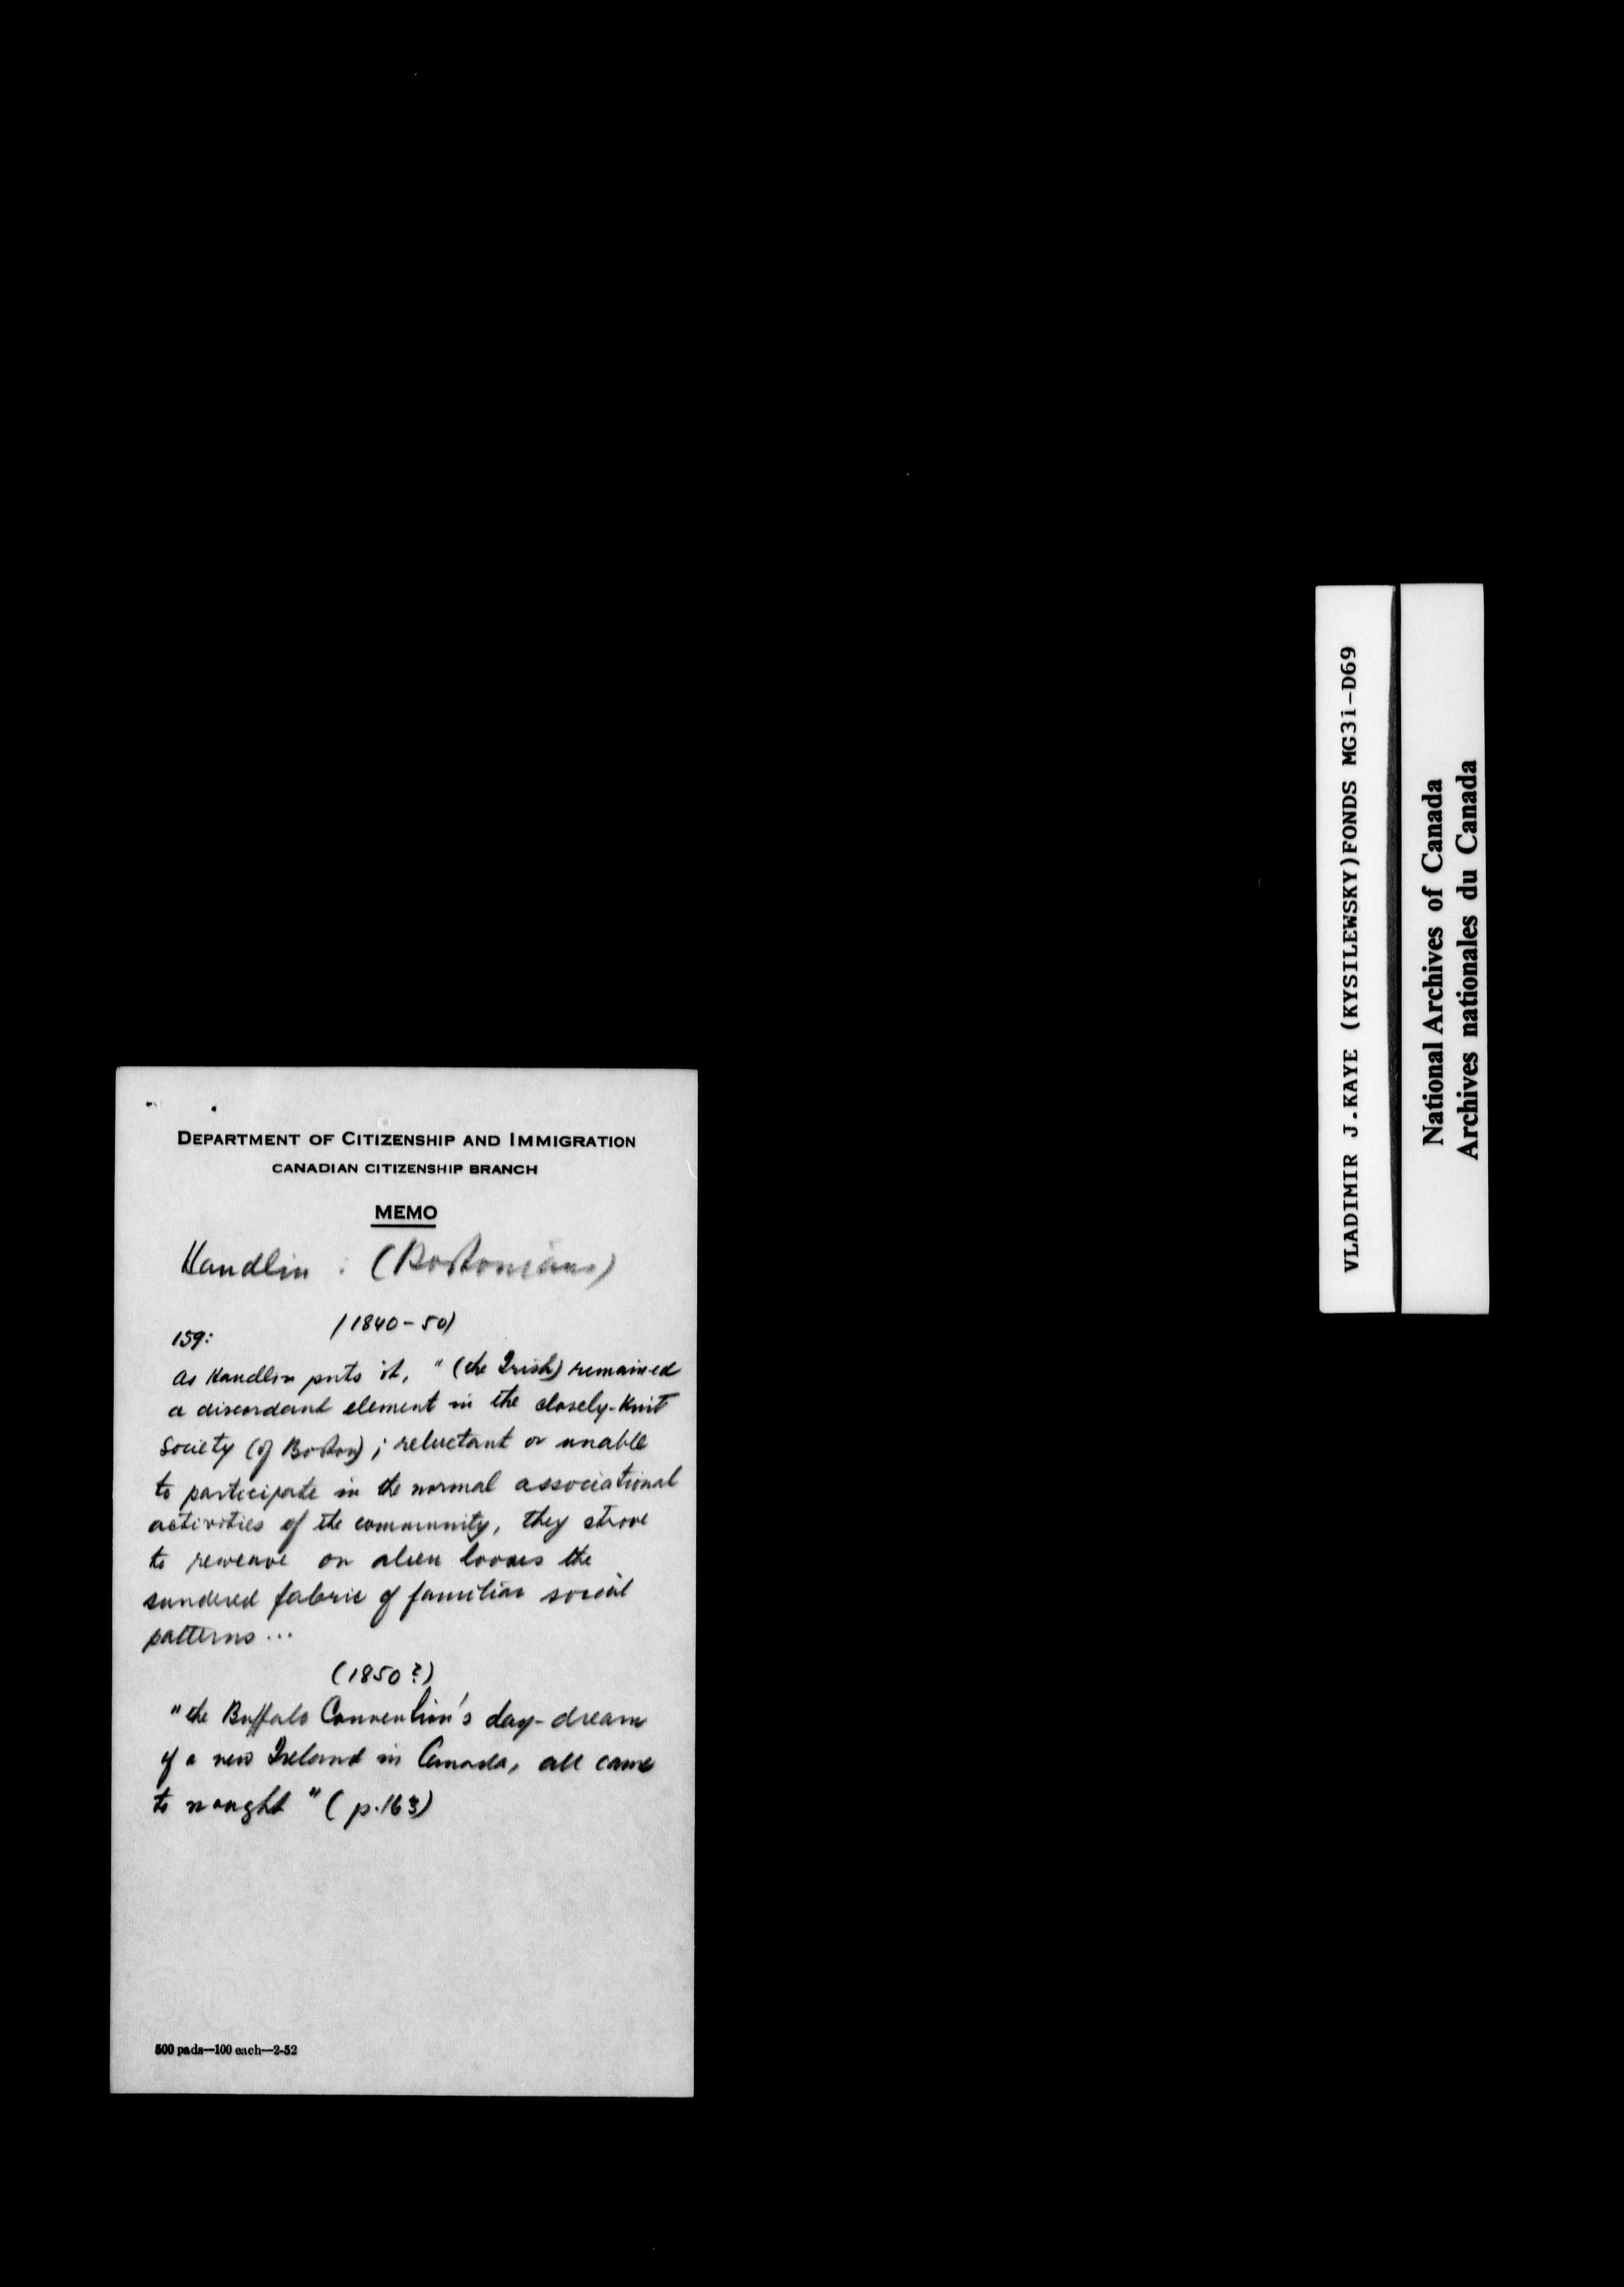 DEPARTMENT OF CITIZENSHIP AND IMMIGRATION
CANADIAN CITIZENSHIP BRANCH
MEMO
Handlin : (Bostonians)
(1840-50)
159:
As Handlin puts it, "(the Irish) remained
a discordant element in the closely-knit
society (of Boston); reluctant or unable
to participate in the normal associational
activities of the community, they strove
to reweave on alien looms the
sundered fabric of familiar social
patterns...
(1850?)
"the Buffalo Convention's day-dream
of a new Ireland in Canada, all came
to nought" (p.163)
500 pads—100 each—2-52
VLADIMIR J.KAYE (KYSILEWSKY)FONDS MG31-D69
National Archives of Canada
Archives nationales du Canada